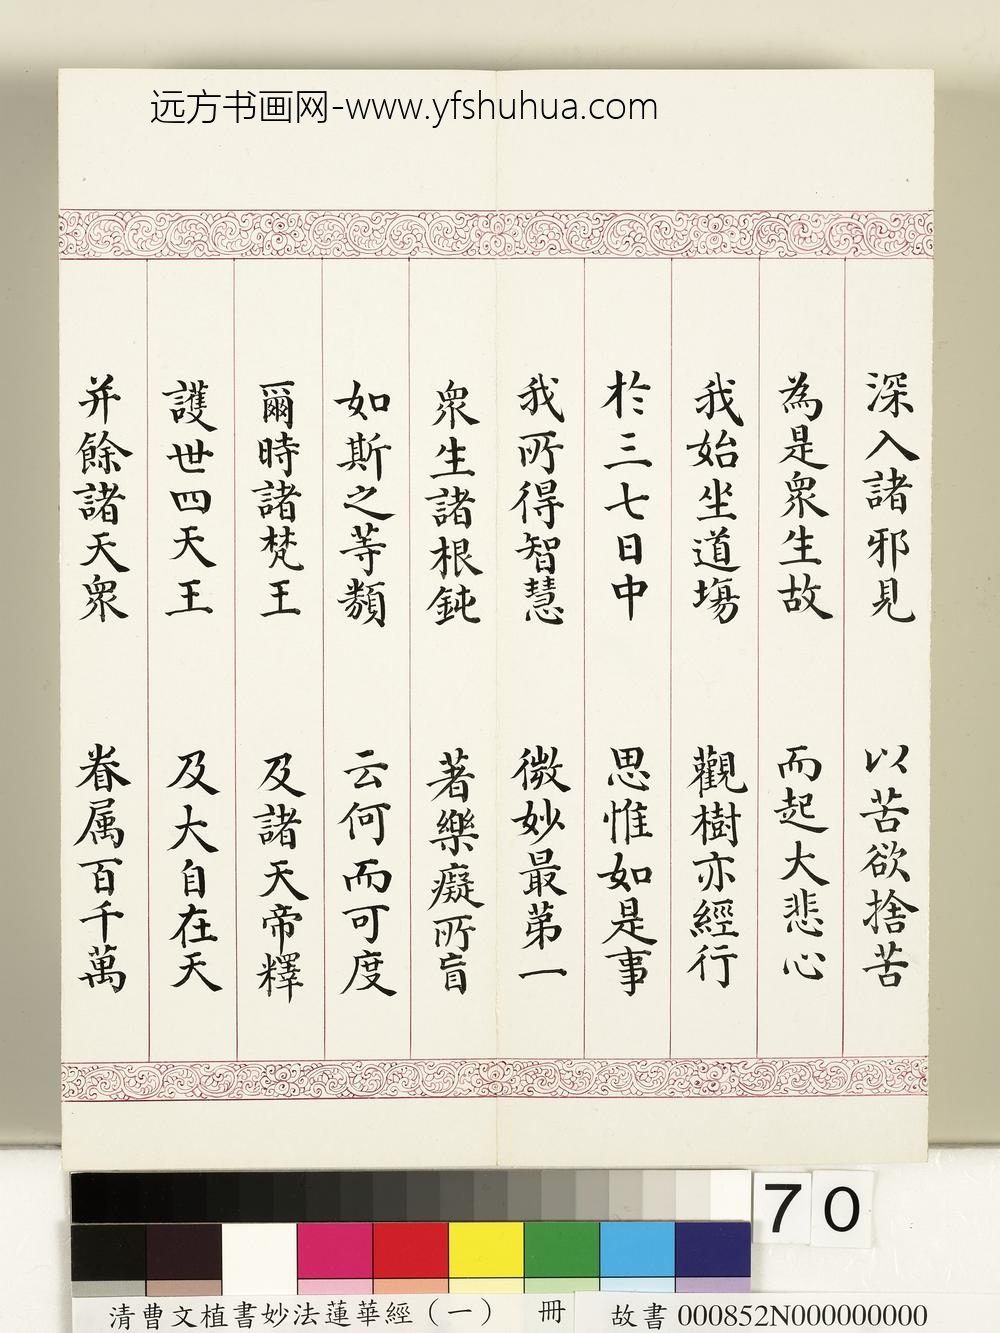 远方书画网-www.yfshuhua.com
深入諸邪見 以苦欲捨苦
為是眾生故 而起大悲心
我始坐道塲 觀樹亦經行
於三七日中 思惟如是事
我所得智慧 微妙最苐一
眾生諸根鈍 著樂癡所盲
如斯之等類 云何而可度
爾時諸梵王 及諸天帝釋
護世四天王 及大自在天
并餘諸天眾 眷属百千萬
70
清曹文植書妙法蓮華經（一） 冊 故書 000852N000000000